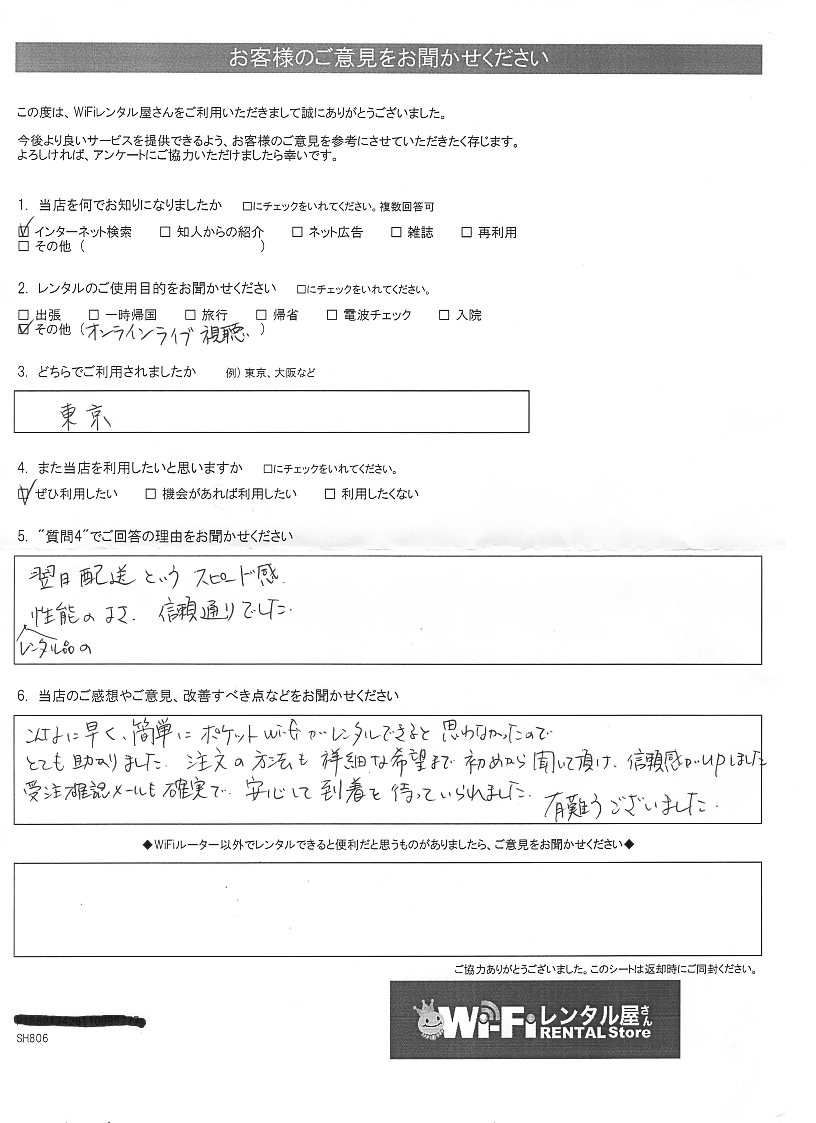 お客様のご意見をお聞かせください
この度は、WiFiレンタル屋さんをご利用いただきまして誠にありがとうございました。
今後より良いサービスを提供できるよう、お客様のご意見を参考にさせていただきたく存じます。
よろしければ、アンケートにご協力いただけましたら幸いです。
1. 当店を何でお知りになりましたか □にチェックをいれてください。複数回答可
☑ インターネット検索 □ 知人からの紹介 □ ネット広告 □ 雑誌 □ 再利用
□ その他 ( )
2. レンタルのご使用目的をお聞かせください □にチェックをいれてください。
□ 出張 □ 一時帰国 □ 旅行 □ 帰省 □ 電波チェック □ 入院
☑ その他 (オンラインライブ視聴. )
3. どちらでご利用されましたか 例) 東京、大阪など
東京
4. また当店を利用したいと思いますか □にチェックをいれてください。
☑ ぜひ利用したい □ 機会があれば利用したい □ 利用したくない
5. "質問4"でご回答の理由をお聞かせください
翌日配送というスピード感.
性能のよさ. 信頼通りでした.
レンタル品の
6. 当店のご感想やご意見、改善すべき点などをお聞かせください
こんなに早く、簡単にポケットwi-fiがレンタルできると思わなかったので
とても助かりました. 注文の方法も詳細な希望まで初めから聞いて頂け、信頼感がupしました
受注確認メールも確実で、安心して到着を待っていられました.
有難うございました.
◆WiFiルーター以外でレンタルできると便利だと思うものがありましたら、ご意見をお聞かせください◆
ご協力ありがとうございました。このシートは返却時にご同封ください。
SH806
Wi-Fiレンタル屋さん
RENTAL Store